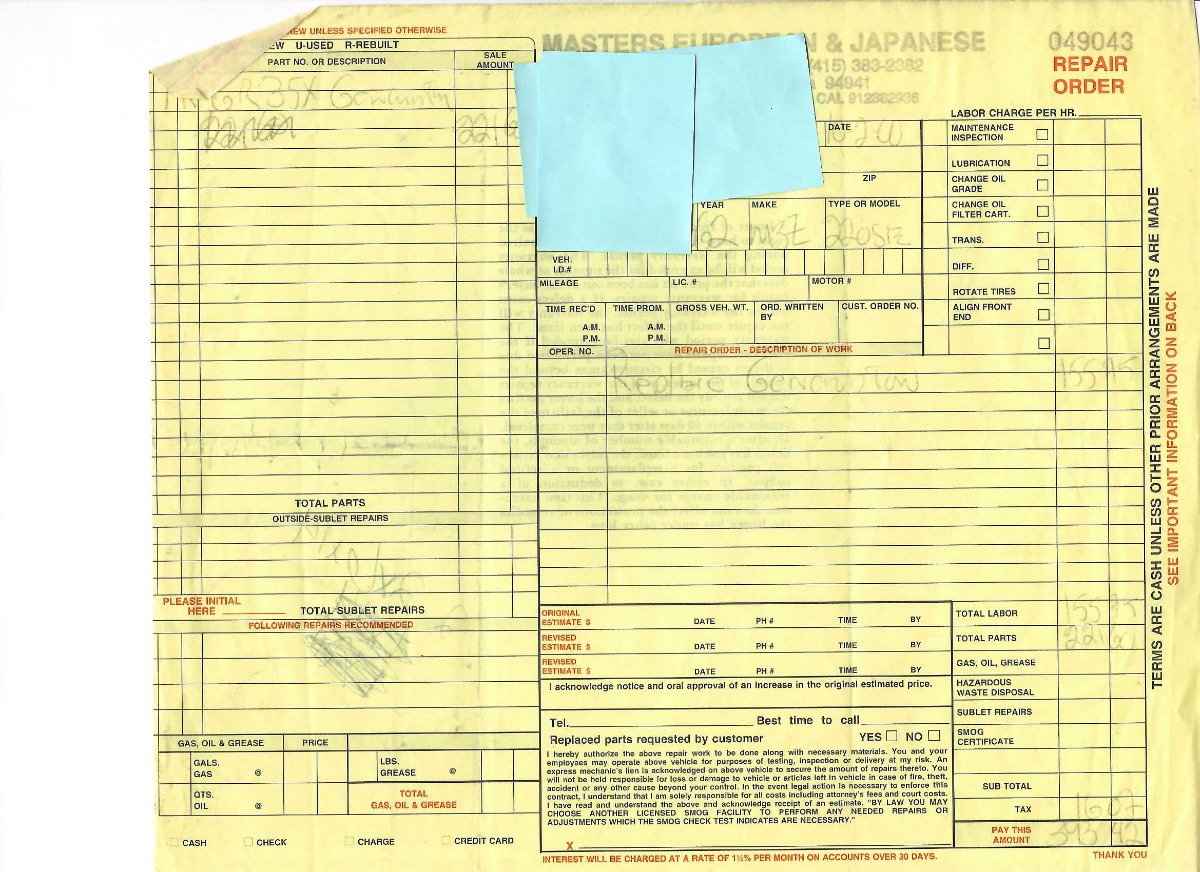 NEW UNLESS SPECIFIED OTHERWISE
EW U-USED R-REBUILT
PART NO. OR DESCRIPTION
SALE AMOUNT
GR 35X
MASTERS EUROPEAN & JAPANESE
(415) 383-2382
94941
CAL 912382936
049043
REPAIR
ORDER
LABOR CHARGE PER HR.
DATE
ZIP
YEAR MAKE TYPE OR MODEL
62 MBZ 220SE
VEH.
I.D.#
MILEAGE LIC. # MOTOR #
TIME REC'D TIME PROM. GROSS VEH. WT. ORD. WRITTEN BY CUST. ORDER NO.
A.M. A.M.
P.M. P.M.
OPER. NO. REPAIR ORDER - DESCRIPTION OF WORK
155 75
MAINTENANCE INSPECTION
LUBRICATION
CHANGE OIL GRADE
CHANGE OIL FILTER CART.
TRANS.
DIFF.
ROTATE TIRES
ALIGN FRONT END
TERMS ARE CASH UNLESS OTHER PRIOR ARRANGEMENTS ARE MADE
SEE IMPORTANT INFORMATION ON BACK
TOTAL PARTS
OUTSIDE-SUBLET REPAIRS
PLEASE INITIAL
HERE TOTAL SUBLET REPAIRS
FOLLOWING REPAIRS RECOMMENDED
GAS, OIL & GREASE PRICE
GALS.
GAS @
LBS.
GREASE @
QTS.
OIL @
TOTAL
GAS, OIL & GREASE
CASH CHECK CHARGE CREDIT CARD
ORIGINAL
ESTIMATE $ DATE PH # TIME BY
REVISED
ESTIMATE $ DATE PH # TIME BY
REVISED
ESTIMATE $ DATE PH # TIME BY
I acknowledge notice and oral approval of an increase in the original estimated price.
Tel. Best time to call
Replaced parts requested by customer YES NO
I hereby authorize the above repair work to be done along with necessary materials. You and your
employees may operate above vehicle for purposes of testing, inspection or delivery at my risk. An
express mechanic's lien is acknowledged on above vehicle to secure the amount of repairs thereto. You
will not be held responsible for loss or damage to vehicle or articles left in vehicle in case of fire, theft,
accident or any other cause beyond your control. In the event legal action is necessary to enforce this
contract, I understand that I am solely responsible for all costs including attorney's fees and court costs.
I have read and understand the above and acknowledge receipt of an estimate. "BY LAW YOU MAY
CHOOSE ANOTHER LICENSED SMOG FACILITY TO PERFORM ANY NEEDED REPAIRS OR
ADJUSTMENTS WHICH THE SMOG CHECK TEST INDICATES ARE NECESSARY."
X
INTEREST WILL BE CHARGED AT A RATE OF 1½% PER MONTH ON ACCOUNTS OVER 30 DAYS.
TOTAL LABOR 155 75
TOTAL PARTS 221 60
GAS, OIL, GREASE
HAZARDOUS
WASTE DISPOSAL
SUBLET REPAIRS
SMOG
CERTIFICATE
SUB TOTAL
TAX 16 07
PAY THIS
AMOUNT 393 42
THANK YOU